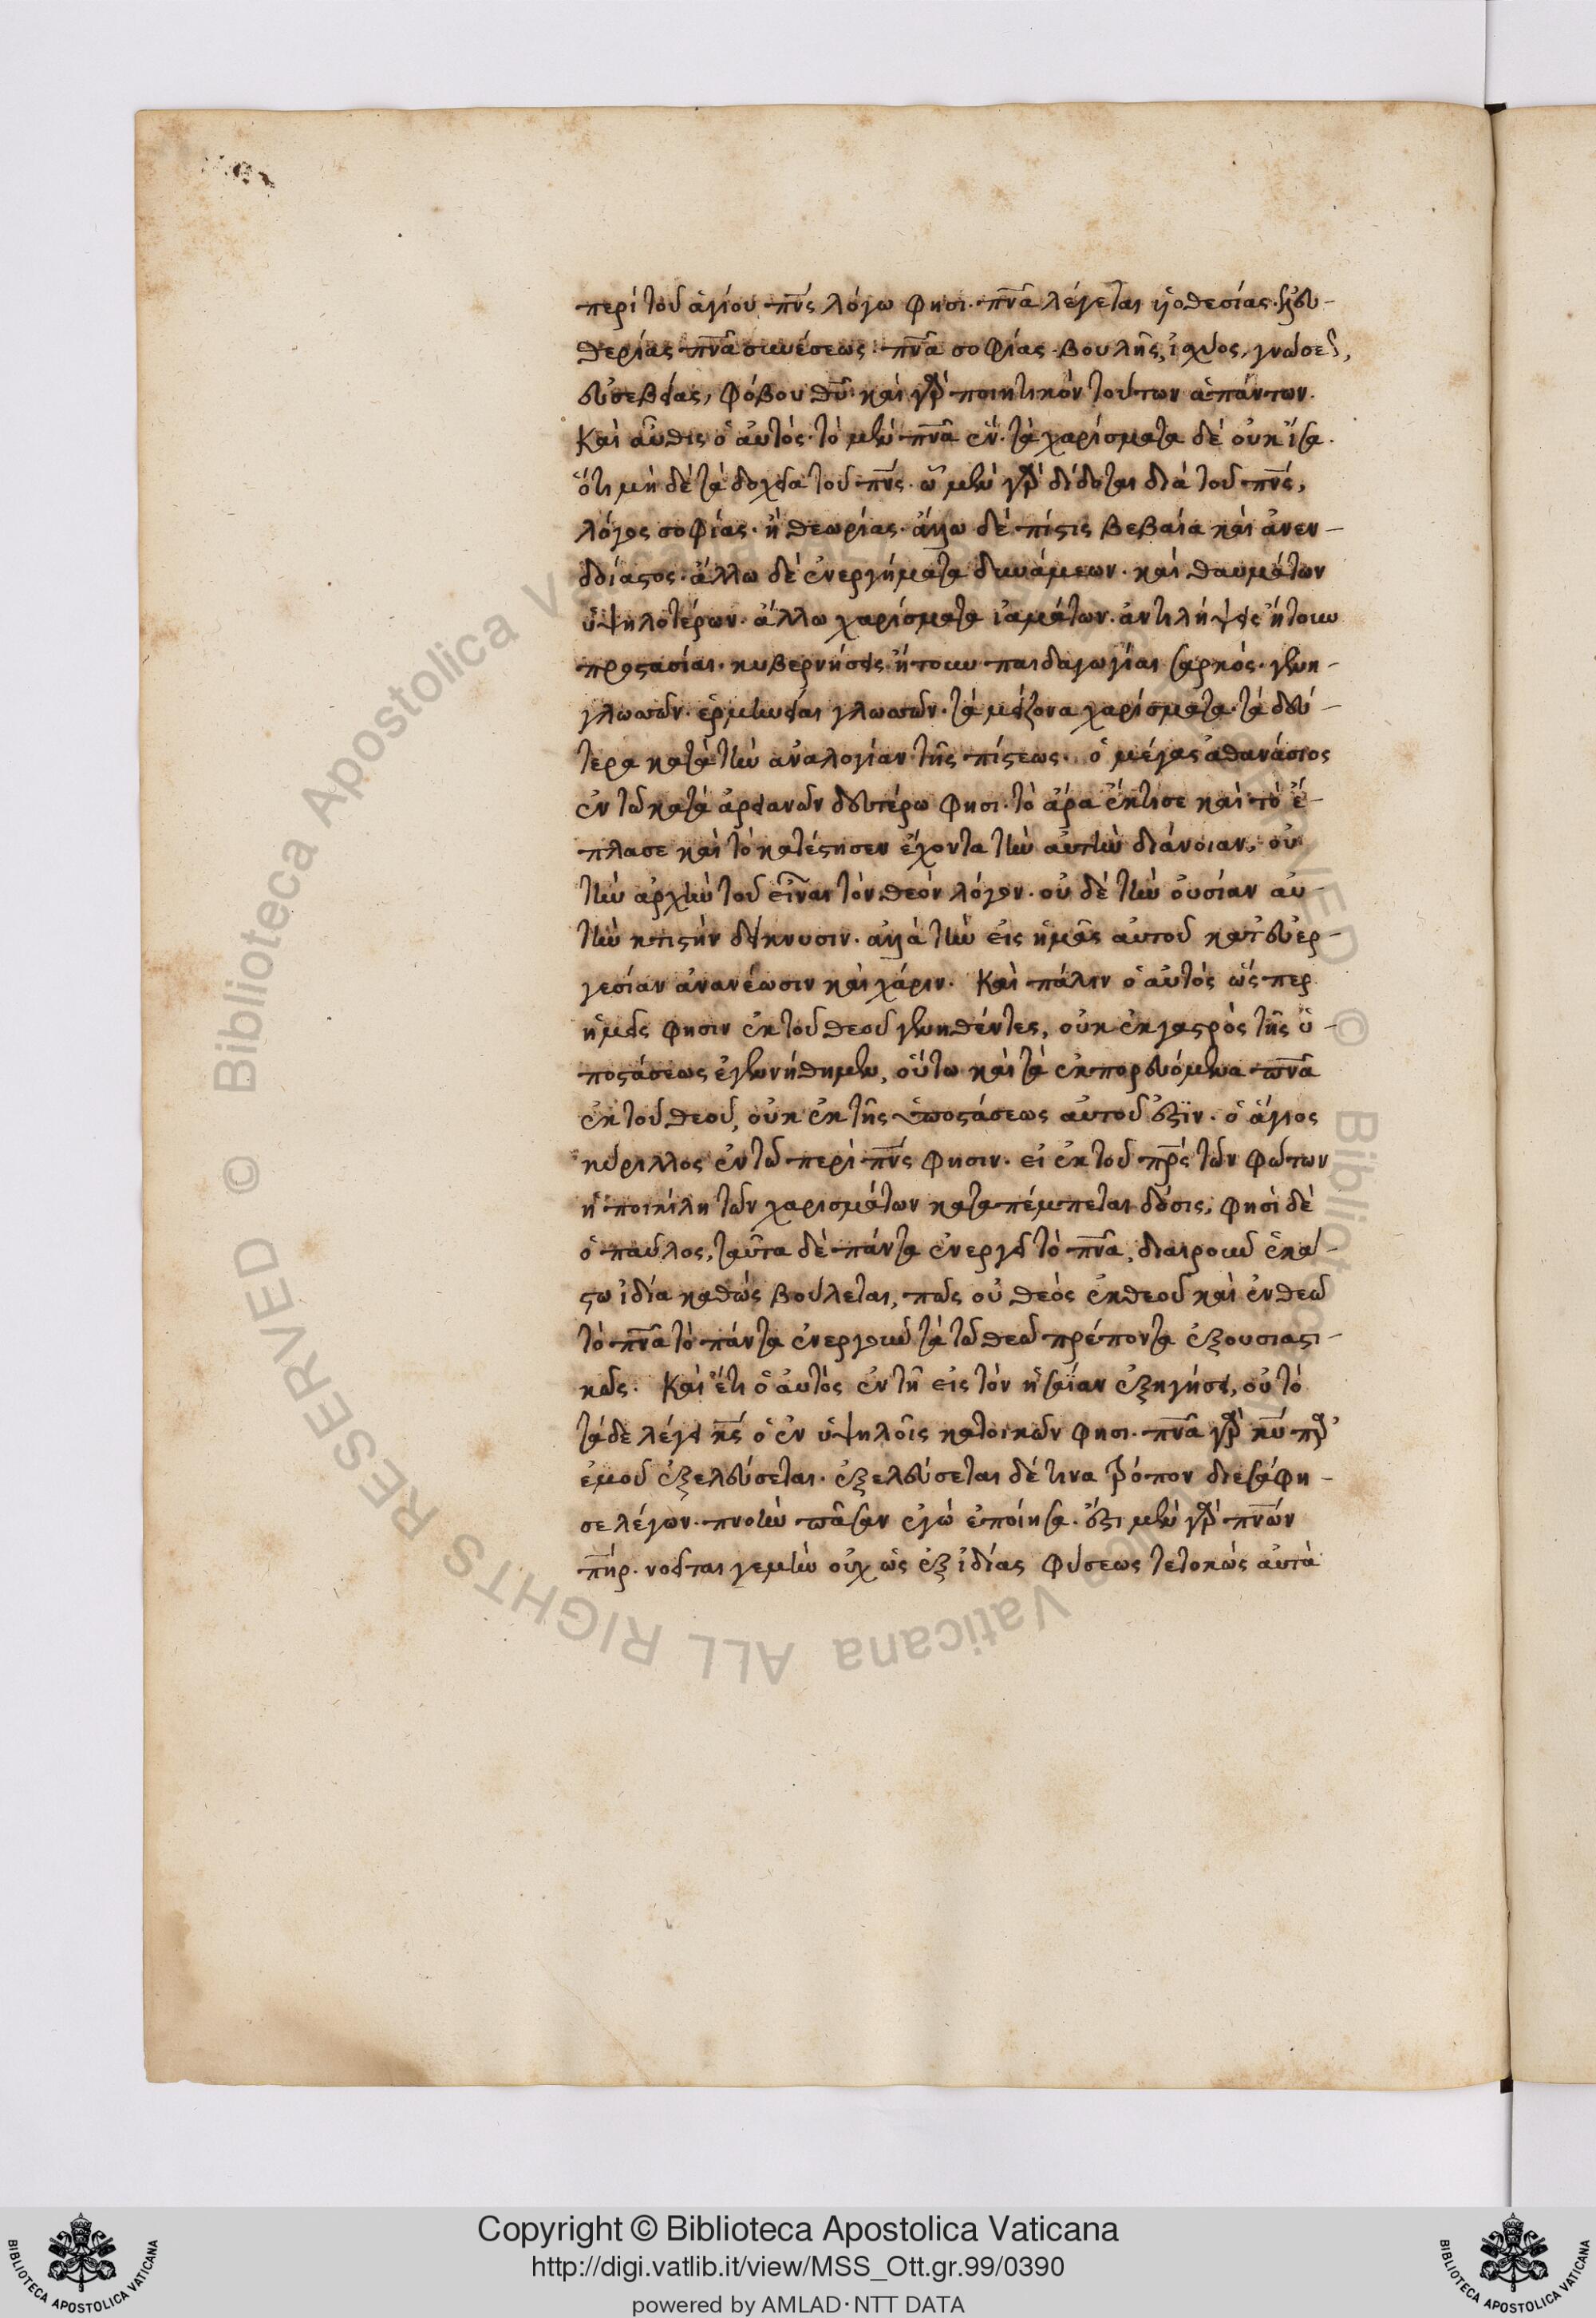 περὶ τοῦ ἁγίου πνς λόγω φησι· πνα λέγεται υἱοθεσίας· ἐλευ-
θερίας πνα συνέσεως· πνα σοφίας· βουλῆς, ἰσχύος, γνώσεως,
εὐσεβείας, φόβου θυ· καὶ γὰρ ποιητικὸν τούτων ἁπάντων.
Καὶ αὖθις ὁ αὐτός· τὸ μὲν πνα ἕν· τὰ χαρίσματα δὲ οὐκ ἴσα.
ὅτι μὴ δὲ τὰ δοχεῖα τοῦ πνς. ὧ μὲν γὰρ δίδοται διὰ τοῦ πνς,
λόγος σοφίας· ἢ θεωρίας· ἄλλω δὲ πίστις βεβαία καὶ ἀνεν-
δοίαστος· ἄλλω δὲ ἐνεργήματα δυνάμεων· καὶ θαυμάτων
ὑψηλοτέρων· ἄλλω χαρίσματα ἰαμάτων· ἀντιλήψεις ἤτουν
προστασίαι· κυβερνήσεις ἤτουν παιδαγωγίαι σαρκός· γένη
γλωσσῶν· ἑρμηνεῖαι γλωσσῶν· τὰ μείζονα χαρίσματα· τὰ δεύ-
τερα κατὰ τὴν ἀναλογίαν τῆς πίστεως. ὁ μέγας ἀθανάσιος
ἐν τῶ κατὰ ἀρειανῶν δευτέρω φησι· τὸ ἄρα ἔκτισε καὶ τὸ ἔ-
πλασε καὶ τὸ κατέστησεν ἔχοντα τὴν αὐτὴν διάνοιαν, οὐ
τὴν ἀρχὴν τοῦ εἶναι τὸν θεὸν λόγον· οὐ δὲ τὴν οὐσίαν αὐ-
τὴν κτιστὴν δείκνυσιν· ἀλλὰ τὴν εἰς ἡμᾶς αὐτοῦ κατ' εὐερ-
γεσίαν ἀνανέωσιν καὶ χάριν. Καὶ πάλιν ὁ αὐτὸς ὥσπερ
ἡμεῖς φησιν ἐκ τοῦ θεοῦ γεννηθέντες, οὐκ ἐκ γαστρὸς τῆς ὑ-
ποστάσεως ἐγεννήθημεν, οὕτω καὶ τὰ ἐκπορευόμενα πνα
ἐκ τοῦ θεοῦ, οὐκ ἐκ τῆς ὑποστάσεως αὐτοῦ ἐστϊν. ὁ ἅγιος
κύριλλος ἐν τῶ περὶ πνς φησιν· εἰ ἐκ τοῦ πρς τῶν φώτων
ἡ ποικίλη τῶν χαρισμάτων καταπέμπεται δόσις, φησὶ δὲ
ὁ παῦλος, ταῦτα δὲ πάντα ἐνεργεῖ τὸ πνα, διαιροῦν ἑκά-
στω ἰδία καθὼς βούλεται, πῶς οὐ θεὸς ἐκ θεοῦ καὶ ἐν θεῶ
τὸ πνα τὸ πάντα ἐνεργοῦν τὰ τῶ θεῶ πρέποντα ἐξουσιαστι-
κῶς. Καὶ ἔτι ὁ αὐτὸς ἐν τῆ εἰς τὸν ἡσαΐαν ἐξηγήσει, οὗ τὸ
τάδε λέγει κς ὁ ἐν ὑψηλοῖς κατοικῶν φησι· πνα γὰρ κυ παρ'
ἐμοῦ ἐξελεύσεται. ἐξελεύσεται δὲ τίνα τρόπον διεσάφη-
σε λέγων· πνοὴν πᾶσαν ἐγὼ ἐποίησα. ἔστι μὲν γὰρ πνων
πηρ· νοεῖται γε μὴν οὐχ ὡς ἐξ ἰδίας φύσεως τετοκὼς αὐτὰ
Copyright © Biblioteca Apostolica Vaticana
http://digi.vatlib.it/view/MSS_Ott.gr.99/0390
powered by AMLAD·NTT DATA
BIBLIOTECA APOSTOLICA VATICANA
BIBLIOTECA APOSTOLICA VATICANA
© Biblioteca Apostolica Vaticana ALL RIGHTS RESERVED © Biblioteca Apostolica Vaticana ALL RIGHTS RESERVED